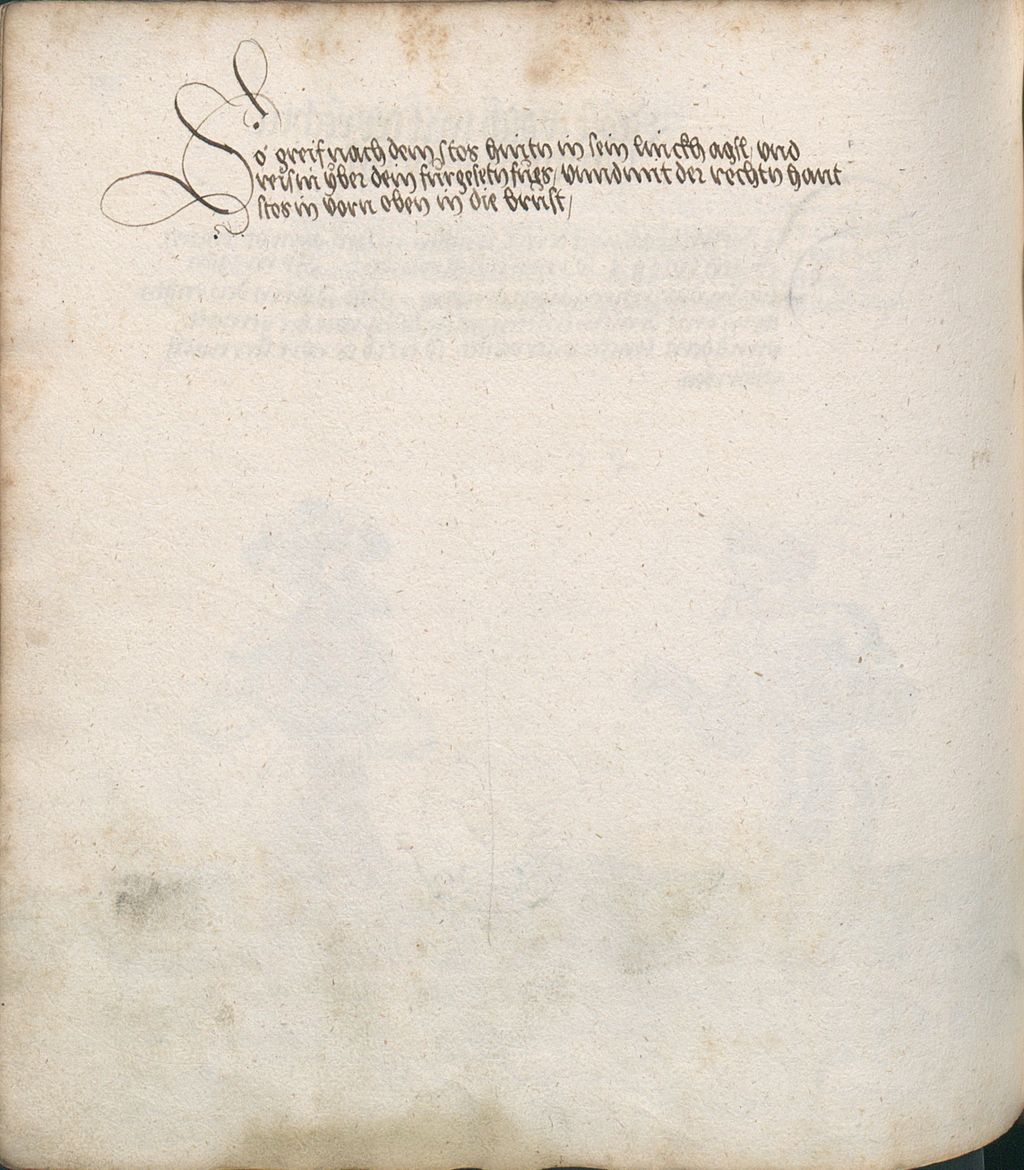 So greif nach dem stos hintn in sein linckh agsl / und
reis in yber dein fürgesetzn fues / unnd mit der rechtn hant
stos in vorn oben in die brust /